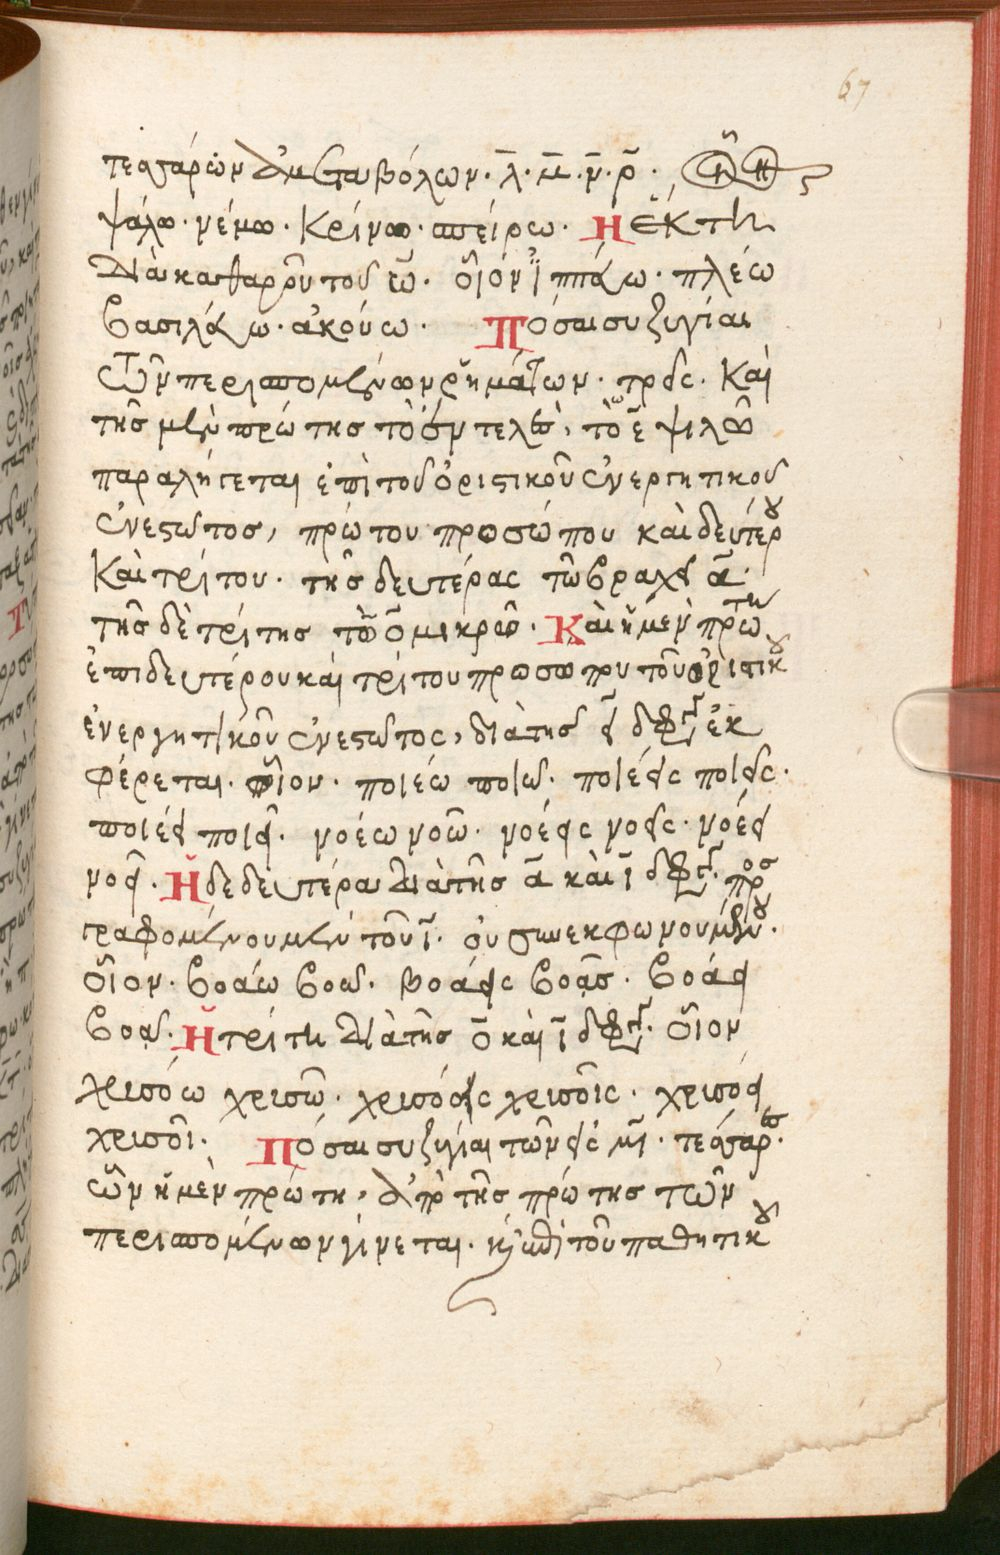 67
τεσσάρων ἀμεταβόλων · λ̄ · μ̄ · ν̄ · ρ̄ ·
ψάλλω · νέμω · κρίνω · σπείρω · Ἡ ἕκτη
διὰ καθαροῦ τοῦ ω̄ · οἷον ἱππεύω · πλέω
βασιλεύω · ἀκούω · Πόσαι συζυγίαι
τῶν περισπομένων ῥημάτων · τρεῖς · Καὶ
τῆς μὲν πρώτης τὸ συντελὲς, τὸ ε̄ ψιλῶ
παραλήγεται ἐπὶ τοῦ ὁριστικοῦ ἐνεργητικοῦ
ἐνεστῶτος, πρώτου προσώπου καὶ δευτέρου
καὶ τρίτου · τῆς δευτέρας τῶ βραχεῖ ᾱ ·
τῆς δὲ τρίτης τῶ ο̄ μικρῶ · Καὶ ἡ μὲν πρώτη
ἐπι δευτέρου καὶ τρίτου προσώπου τοῦ ὁριστικοῦ
ἐνεργητικοῦ ἐνεστῶτος, διὰ τῆς ει διφθόγγου ἐκ
φέρεται · οἷον · ποιέω ποιῶ · ποιέεις ποιεῖς ·
ποιέει ποιεῖ · νοέω νοῶ · νοέεις νοεῖς · νοέει
νοεῖ · Ἡ δε δευτέρα διὰ τῆς ᾱ καὶ ῑ διφθόγγου · προσ
γραφομένου μὲν τοῦ ῑ · οὐ συνεκφωνουμένου ·
οἷον · βοάω βοῶ · βοάεις βοᾷς · βοάει
βοᾷ · Ἡ τρίτη διὰ τῆς ο̄ καὶ ῑ διφθόγγου · οἷον
χρυσόω χρυσῶ · χρυσόεις χρυσοῖς · χρυσόει
χρυσοῖ · Πόσαι συζυγίαι τῶν εἰς μῑ · τέσσαρες ·
ὧν ἡ μὲν πρώτη, ἀπὸ τῆς πρώτης τῶν
περισπομένων γίνεται · τοῦ παθητικοῦ